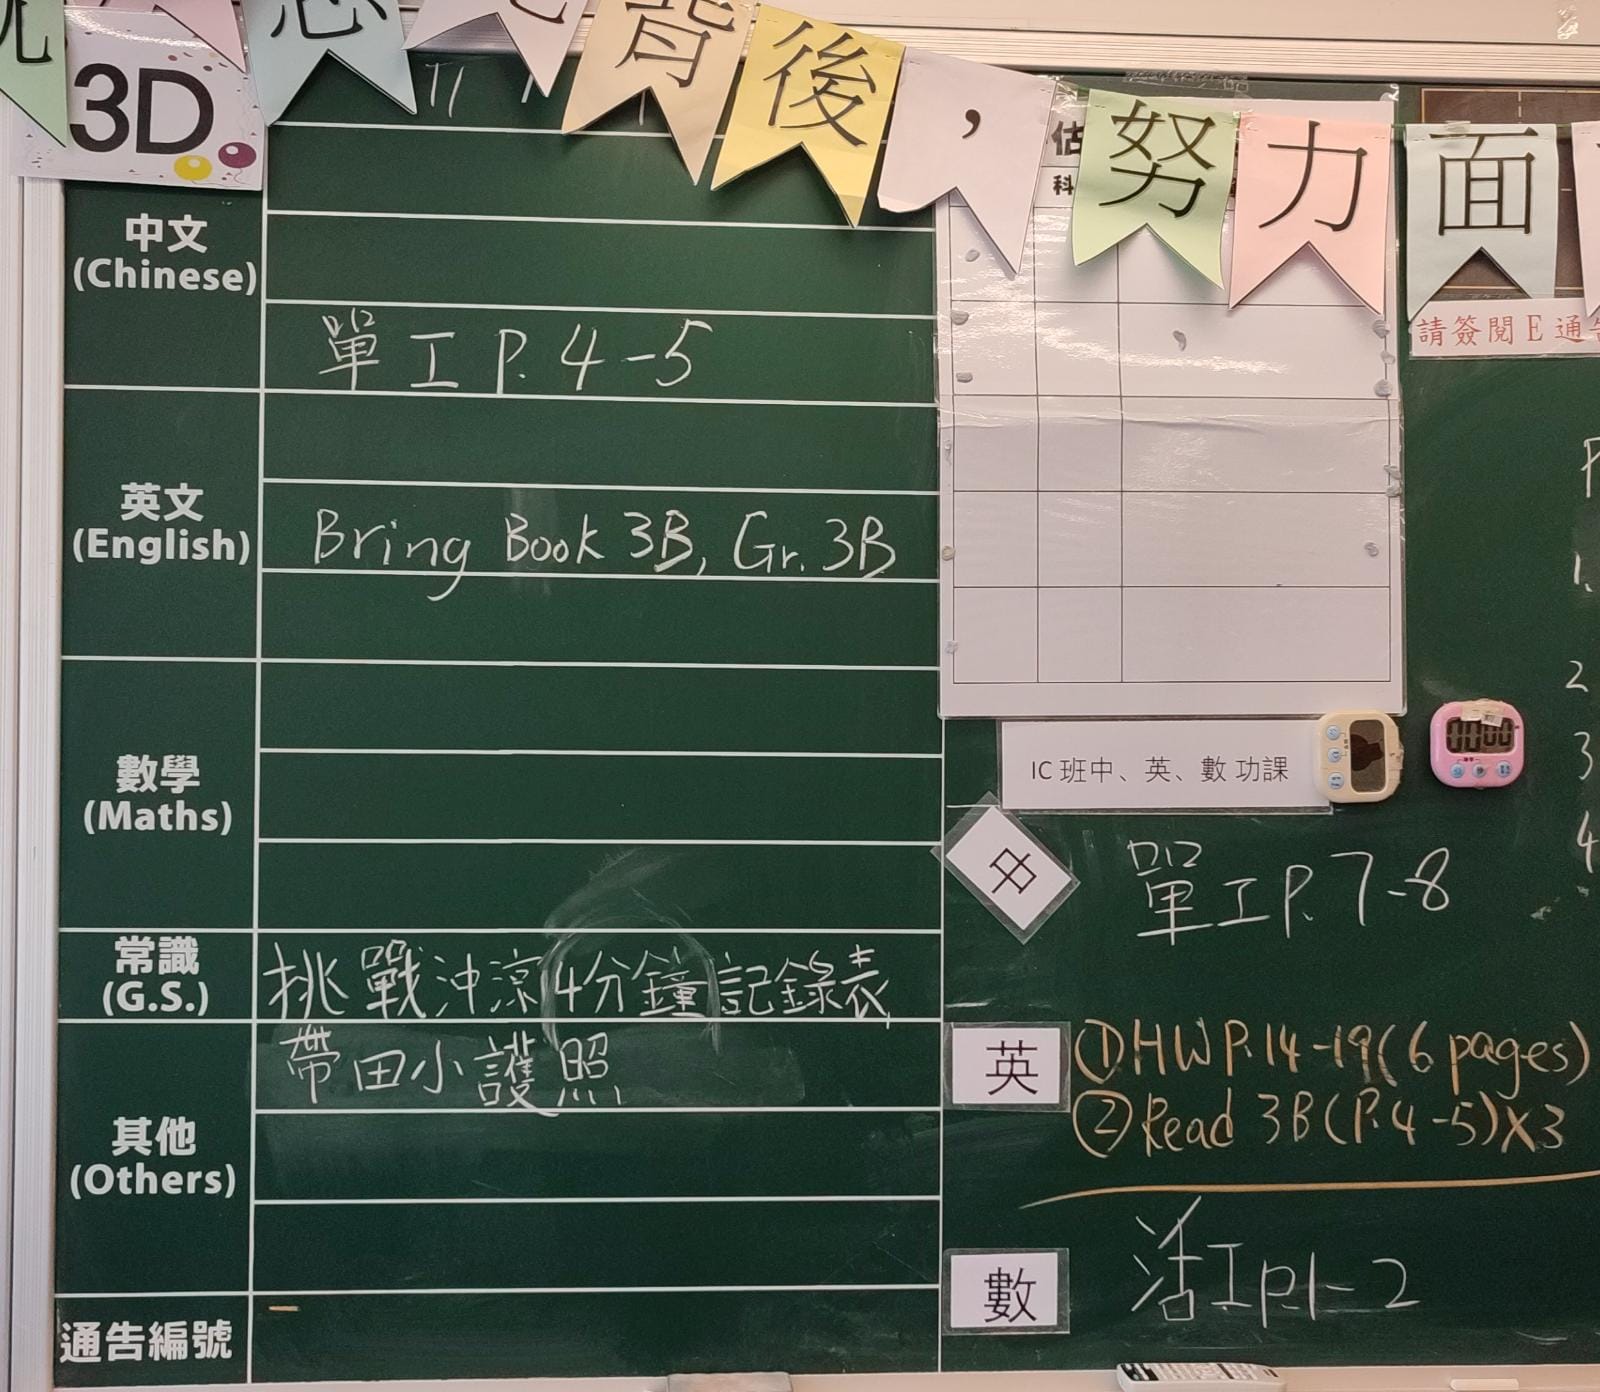 背後，努力面
3D
中文
(Chinese)
單工 P. 4-5
英文
(English)
Bring Book 3B, Gr. 3B
數學
(Maths)
常識
(G.S.)
挑戰沖涼4分鐘記錄表
其他
(Others)
帶田小護照
通告編號
估
科
請簽閱 E 通
IC 班中、英、數 功課
中
單工 P. 7-8
英
① HW P.14-19 (6 pages)
② Read 3B (P.4-5)×3
數
活工 P.1-2
1.
2
3
4